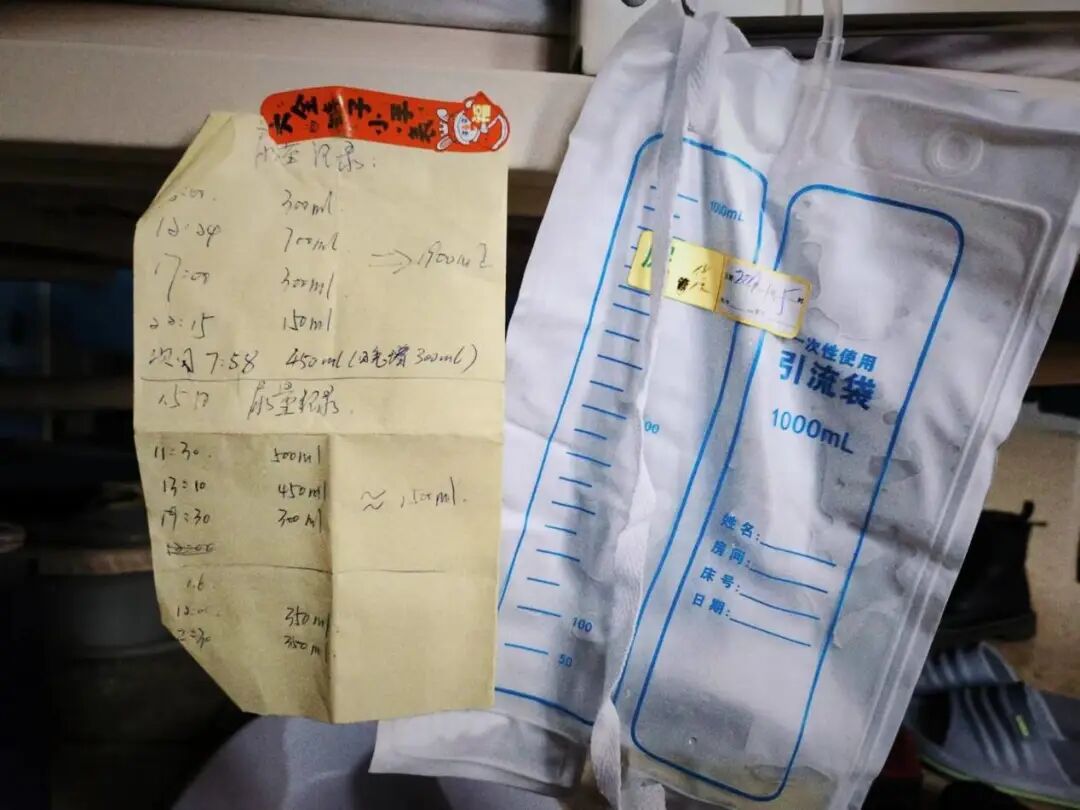 尿量记录:
300ml
12:24 700ml
⇒1900ml
17:00 300ml
22:15 150ml
次日7:58 450ml(300ml)
15日 尿量记录.
11:30. 500ml
13:10 450ml
≈1500ml.
19:30 300ml
16
350ml
2:30 350ml
1000mL
100
50
一次性使用
引流袋
1000mL
姓名:
房间:
床号:
日期: